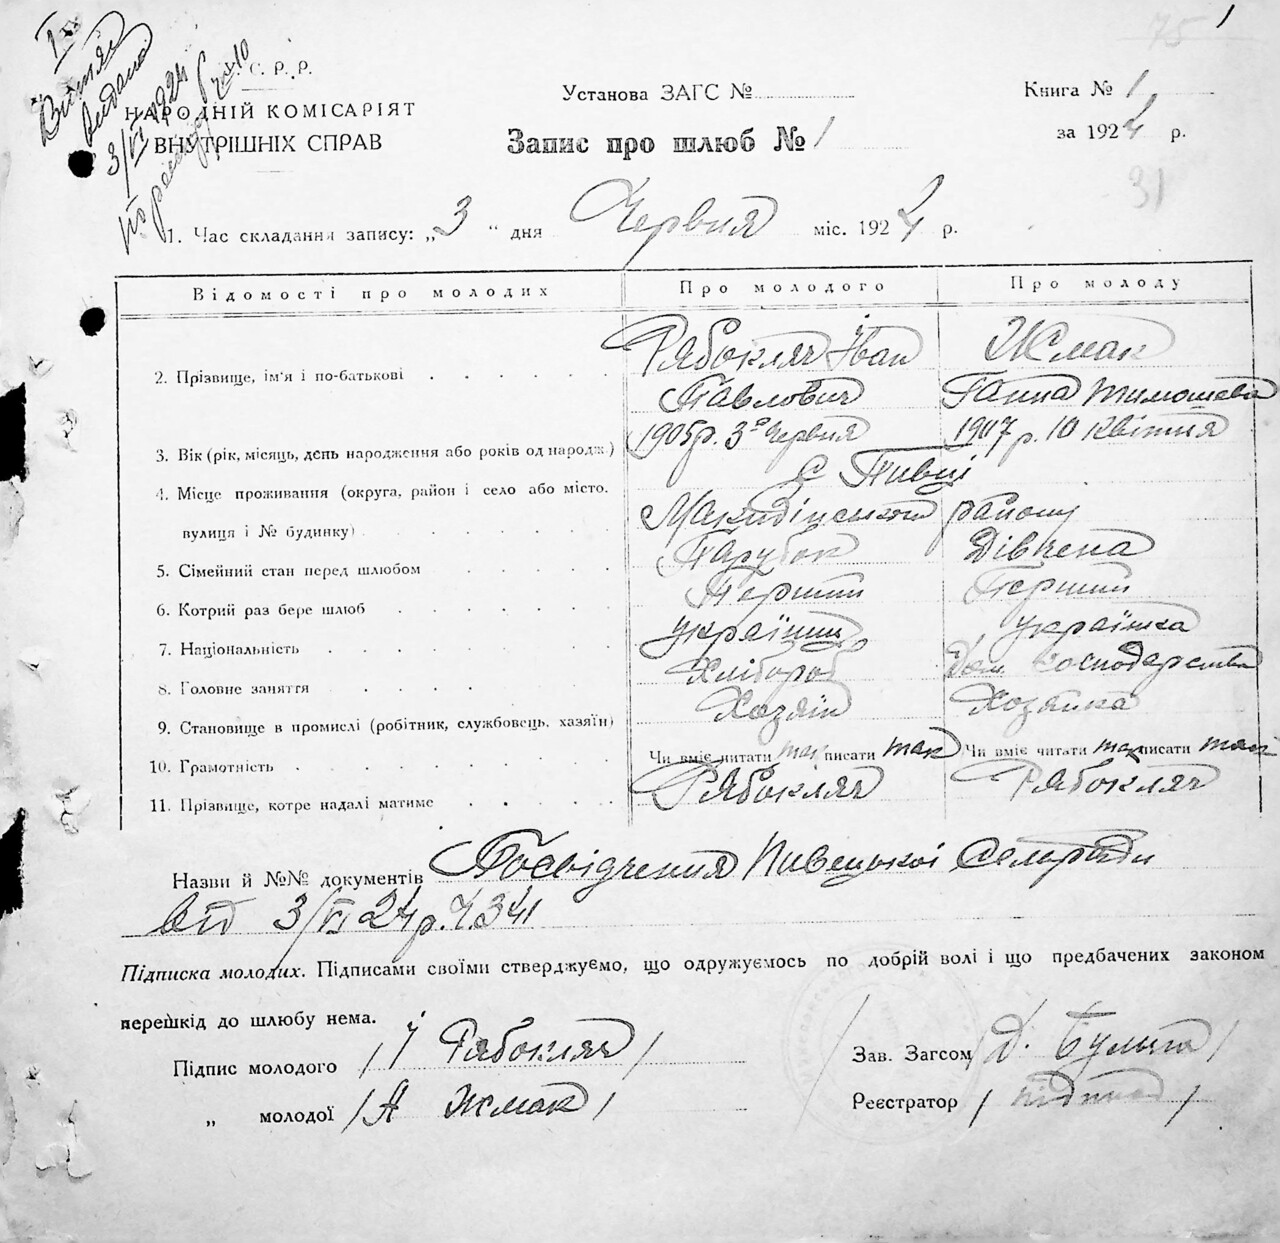 75 1
I
Витяг
видано
3/VI 1924
С. Р. Р.
НАРОДНІЙ КОМІСАРІЯТ
ВНУТРІШНІХ СПРАВ
Установа ЗАГС №
Запис про шлюб № 1
Книга № 1
за 1924 р.
31
1. Час складання запису: „3“ дня Червня міс. 1924 р.
Відомості про молодих Про молодого Про молоду
2. Прізвище, ім'я і по-батькові Рябокляч Іван Павлович Жмак Ганна Тимошева
3. Вік (рік, місяць, день народження або років од народж.) 1905 р. 3го Червня 1907 р. 10 Квітня
4. Місце проживання (округа, район і село або місто, с Пивці
вулиця і № будинку) району
5. Сімейний стан перед шлюбом Парубок Дівчена
6. Котрий раз бере шлюб Перший Перший
7. Національність українець українка
8. Головне заняття Хлібороб Дом господарства
9. Становище в промислі (робітник, службовець, хазяїн) Хазяїн Хозяйка
10. Грамотність Чи вміє читати так писати так Чи вміє читати так писати так
11. Прізвище, котре надалі матиме Рябокляч Рябокляч
Назви й №№ документів Посвідчення Пивецької Сельради
від 3/VI 24 р. Ч. 341
Підписка молодих. Підписами своїми стверджуємо, що одружуємось по добрій волі і що предбачених законом
перешкід до шлюбу нема.
Підпис молодого / І Рябокляч / Зав. Загсом / Д.
„ молодої / А Жмак / Реєстратор / підпис /